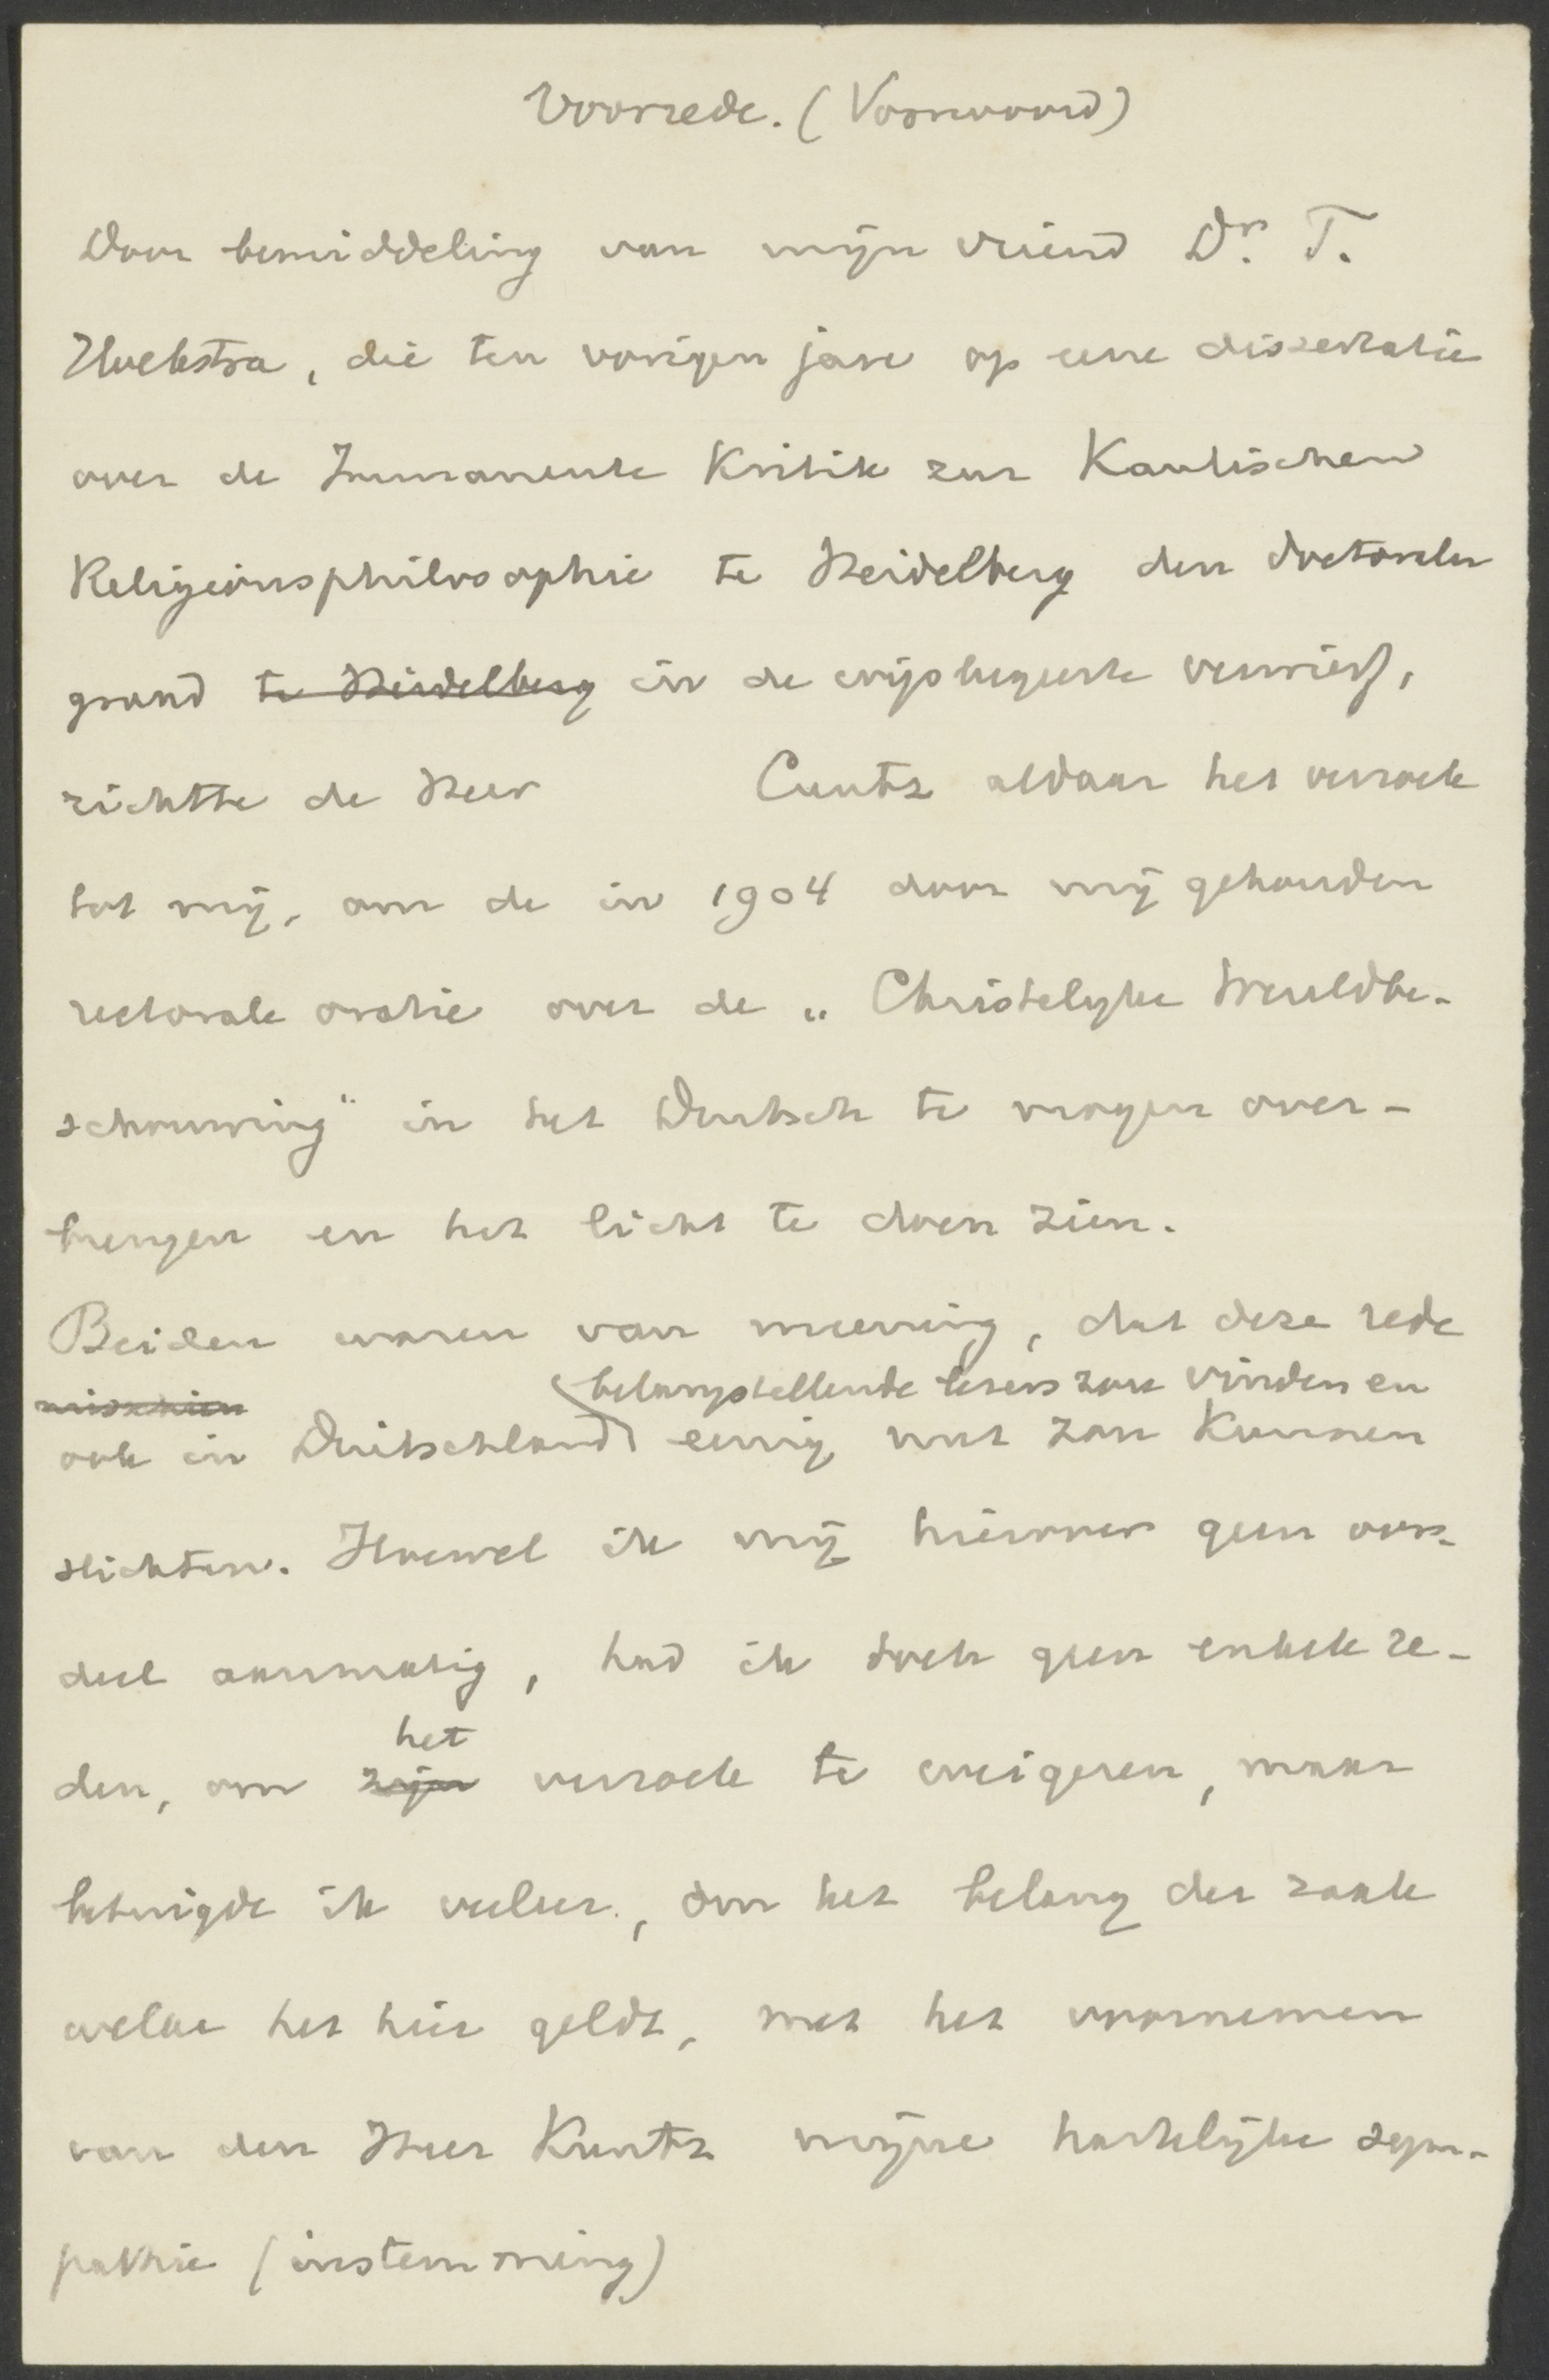 Voorrede. (Voorwoord)
Door bemiddeling van mijn vriend Dr. T.
Hoekstra, die ten vorigen jare op eene dissertatie
over de Immanente Kritik zur Kantischen
Religionsphilosophie te Heidelberg den doctoralen
graad te Heidelberg in de wijsbegeerte verwierf,
richtte de Heer Cuntz aldaar het verzoek
tot mij, om de in 1904 door mij gehouden
rectorale oratie over de „Christelijke Wereldbe-
schouwing" in het Duitsch te mogen over-
brengen en het licht te doen zien.
Beiden waren van meening, dat deze rede
misschien belangstellende lezers zou vinden en
ook in Duitschland eenig nut zou kunnen
stichten. Hoewel ik mij hierover geen oor-
deel aanmatig, had ik toch geen enkele re-
den, om zijn het verzoek te weigeren, maar
betuigde ik veeleer, om het belang der zaak
welke het hier geldt, met het voornemen
van den Heer Kuntz mijne hartelijke sym-
pathie (instemming)